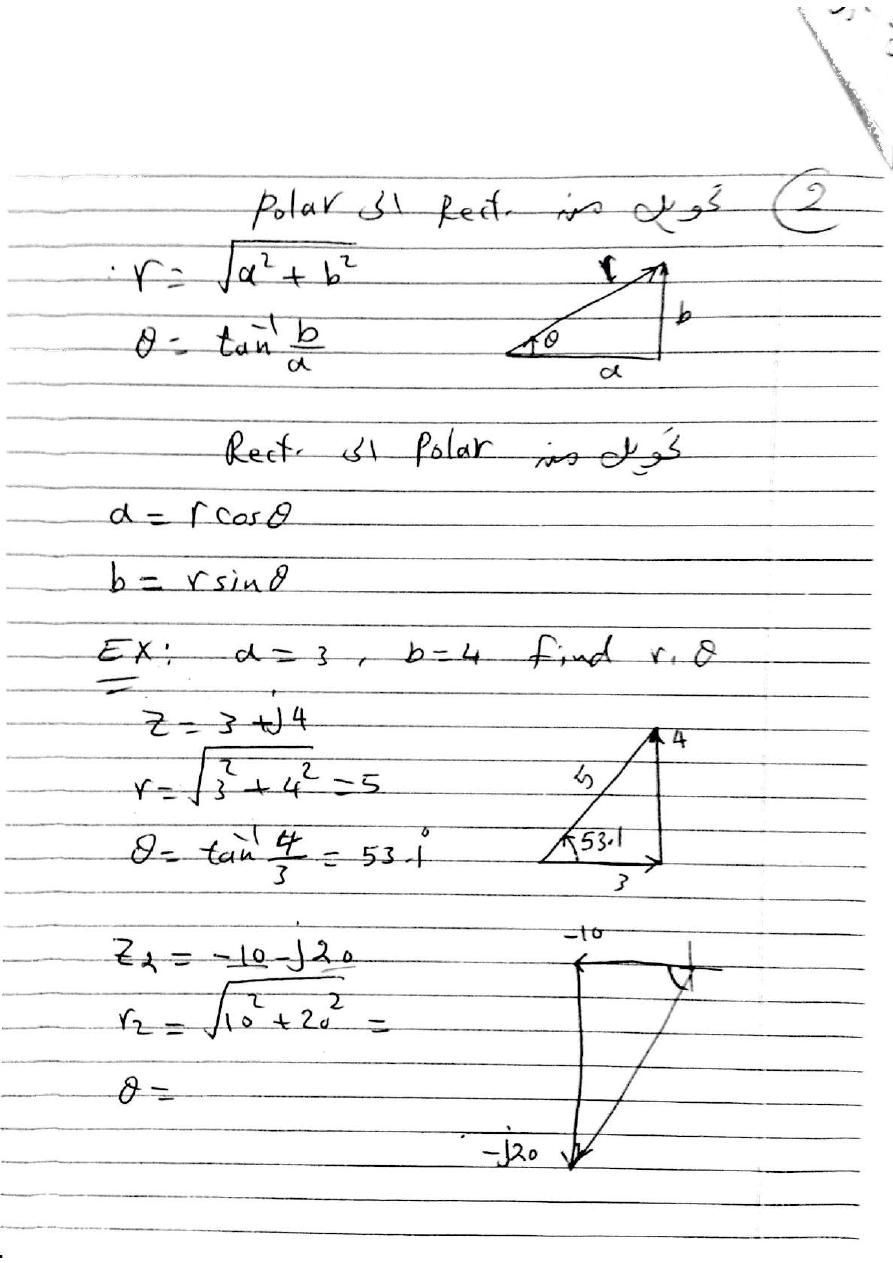 ② تحويل من Rect. الى Polar
r = √(a² + b²)
θ = tan⁻¹ b/a
r
θ
b
a
تحويل من Polar الى Rect.
a = r cos θ
b = r sin θ
EX: a = 3 , b = 4 find r, θ
Z = 3 + j4
r = √(3² + 4²) = 5
θ = tan⁻¹ 4/3 = 53.1°
4
5
53.1
3
Z₂ = -10 - j20
r₂ = √(10² + 20²) =
θ =
-10
-j20